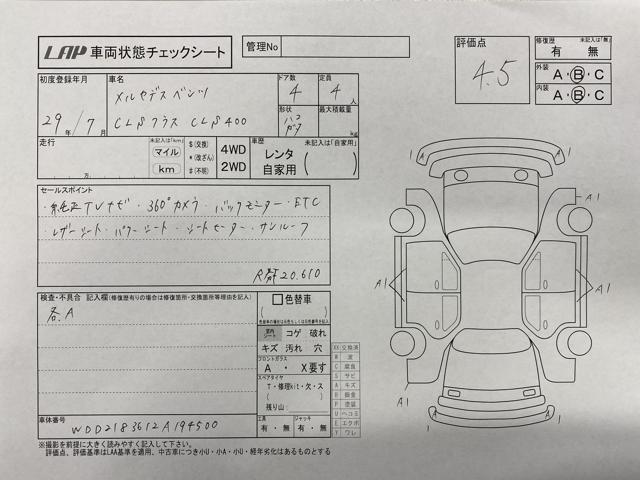 LAP 車両状態チェックシート
管理No
評価点
4.5
修復歴 未記入は「無」
有・無
外装 A・B・C
内装 A・B・C
初度登録年月
29年/7月
車名
メルセデスベンツ
CLSクラス CLS400
ドア数
4
定員
4人
形状
最大積載量
kg
走行 未記入は「km」
万
マイル
km
$(交換)
*(改ざん)
#(不明)
4WD
2WD
車歴 未記入は「自家用」
レンタ
自家用
( )
セールスポイント
・純正TVナビ・360°カメラ・バックモニター・ETC
・レザーシート・パワーシート・シートヒーター・サンルーフ
R券20.610
検査・不具合 記入欄(修復歴有りの場合は修復箇所・交換箇所等理由を記入)
各A
色替車
( )
シート コゲ 破れ
キズ 汚れ 穴
フロントガラス
A ・ X要す
スペアタイヤ
T・修理kit・欠・ス
( )
残り山:
工具
有・無
ジャッキ
有・無
XX 交換済
W 波
C 腐食
S サビ
A キズ
B 鈑金
P 塗装
U ヘコミ
E エクボ
Y ワレ
車体番号
WDD2183612A194500
※撮影を前提に大きく読みやすく記入して下さい。
評価点、評価基準はLAA基準を適用、中古車につき小U・小A・小U・経年劣化はあるものとする
1
1
A1
A1
A1
A1
1
1